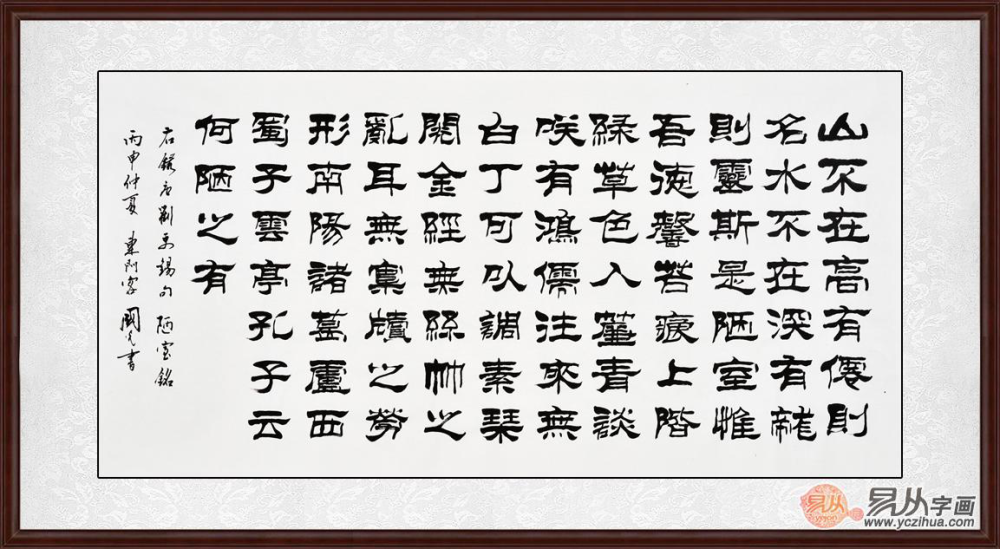 山不在高有僊則
名水不在深有龍
則靈斯是陋室惟
吾德馨苔痕上階
綠草色入簾青談
咲有鴻儒往來無
白丁可以調素琴
閱金經無絲竹之
亂耳無案牘之勞
形南陽諸葛廬西
蜀子雲亭孔子云
何陋之有
右錄唐劉禹錫句 陋室銘
丙申仲夏 東門 國 書
易从
易从字画
www.yczihua.com